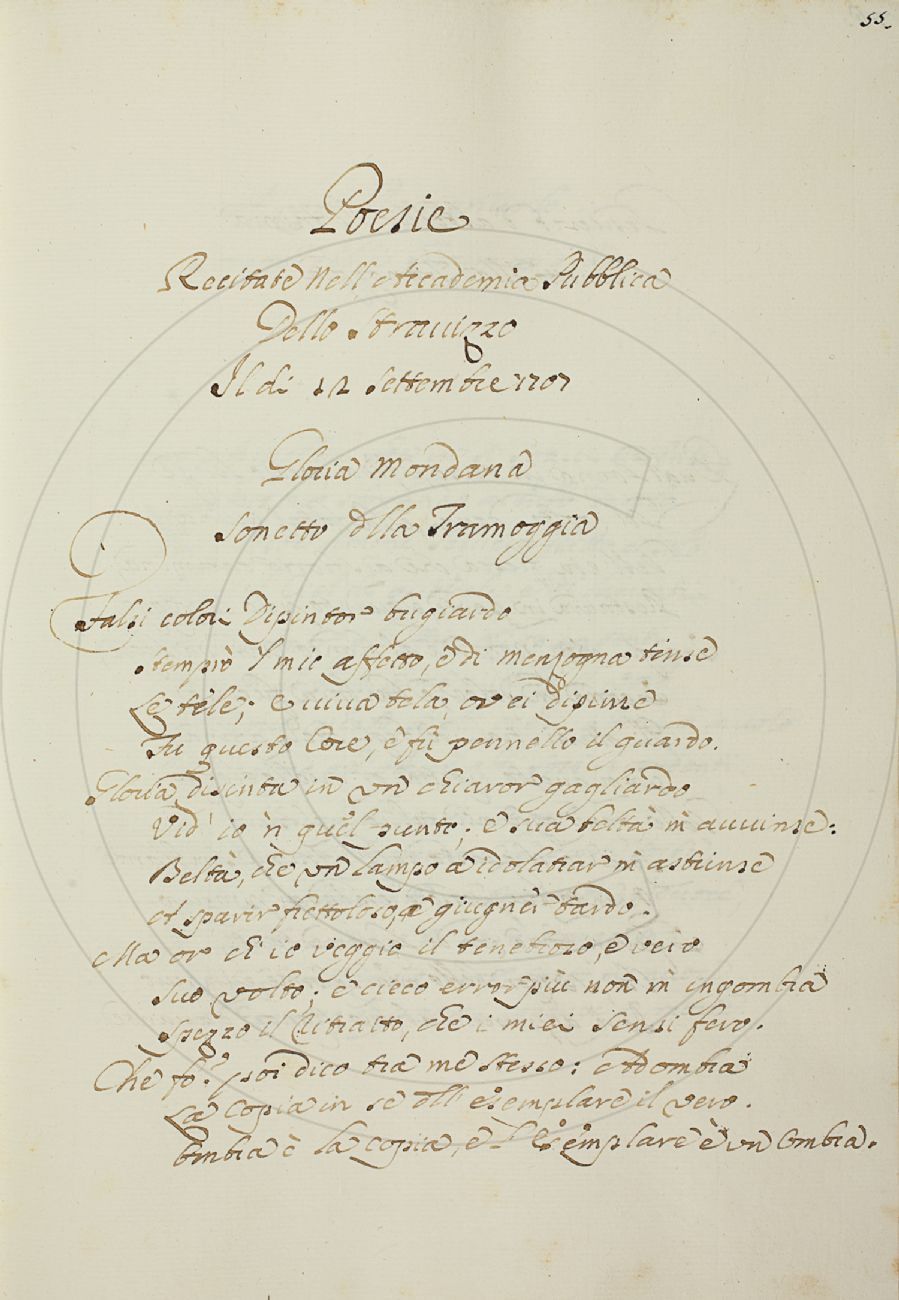 55.
Poesie
Recitate Nell'Accademia Pubblica
Dello Stravizzo
Il di 12 Settembre 1707
Gloria Mondana
Sonetto dlla Tramoggia
Falsi colori Dipintor bugiardo
Stemprò 'l mio affetto, è di menzogna tinse
Le tele; e viva tela, ov ei dipinse
Fu questo Core, è fù pennello il guardo.
Gloria dipinta in vn chiaror gagliardo
Vid' io 'n quel punto; e sua beltà m'avvinse:
Beltà, che vn lampo a idolatrar m'astrinse
A sparir frettoloso, a giugner tardo.
Ma or ch'io veggio il tenebroso, è vero
suo volto; e cieco error più non m'ingombra
Spezzo il Ritratto, che i miei sensi fero.
Che fo? poi dico tra me stesso: Adombra
La Copia in se dll' esemplare il vero.
Ombra è la copia, è l'Esemplare è vn Ombra.